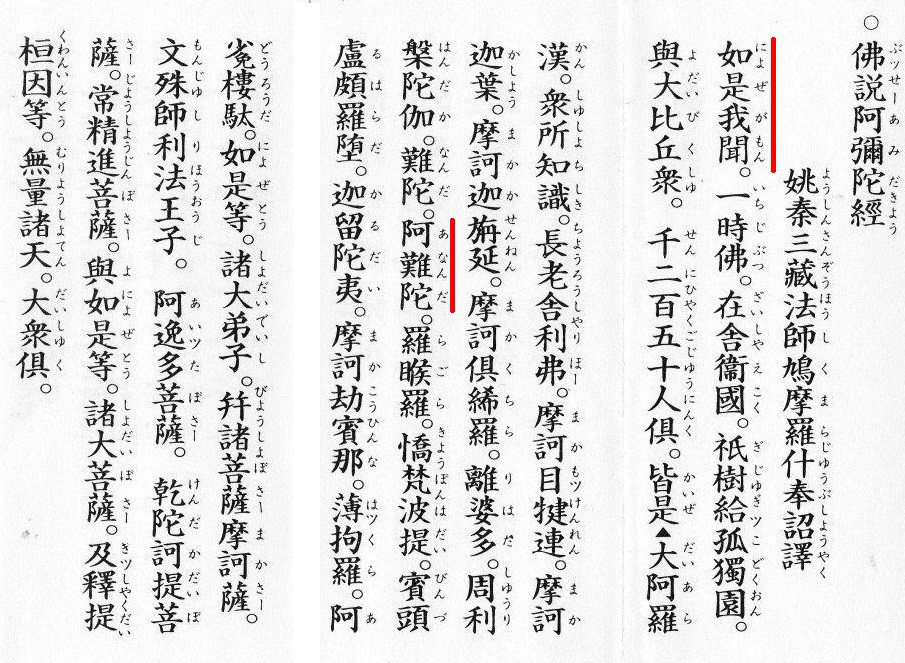 ○佛説阿彌陀經
姚秦三藏法師鳩摩羅什奉詔譯
如是我聞。一時佛。在舍衞國。祇樹給孤獨園。
與大比丘衆。千二百五十人俱。皆是▲大阿羅
漢。衆所知識。長老舍利弗。摩訶目犍連。摩訶
迦葉。摩訶迦旃延。摩訶俱絺羅。離婆多。周利
槃陀伽。難陀。阿難陀。羅睺羅。憍梵波提。賓頭
盧頗羅堕。迦留陀夷。摩訶劫賓那。薄拘羅。阿
㝹樓駄。如是等。諸大弟子。幷諸菩薩摩訶薩。
文殊師利法王子。阿逸多菩薩。乾陀訶提菩
薩。常精進菩薩。與如是等。諸大菩薩。及釋提
桓因等。無量諸天。大衆俱。